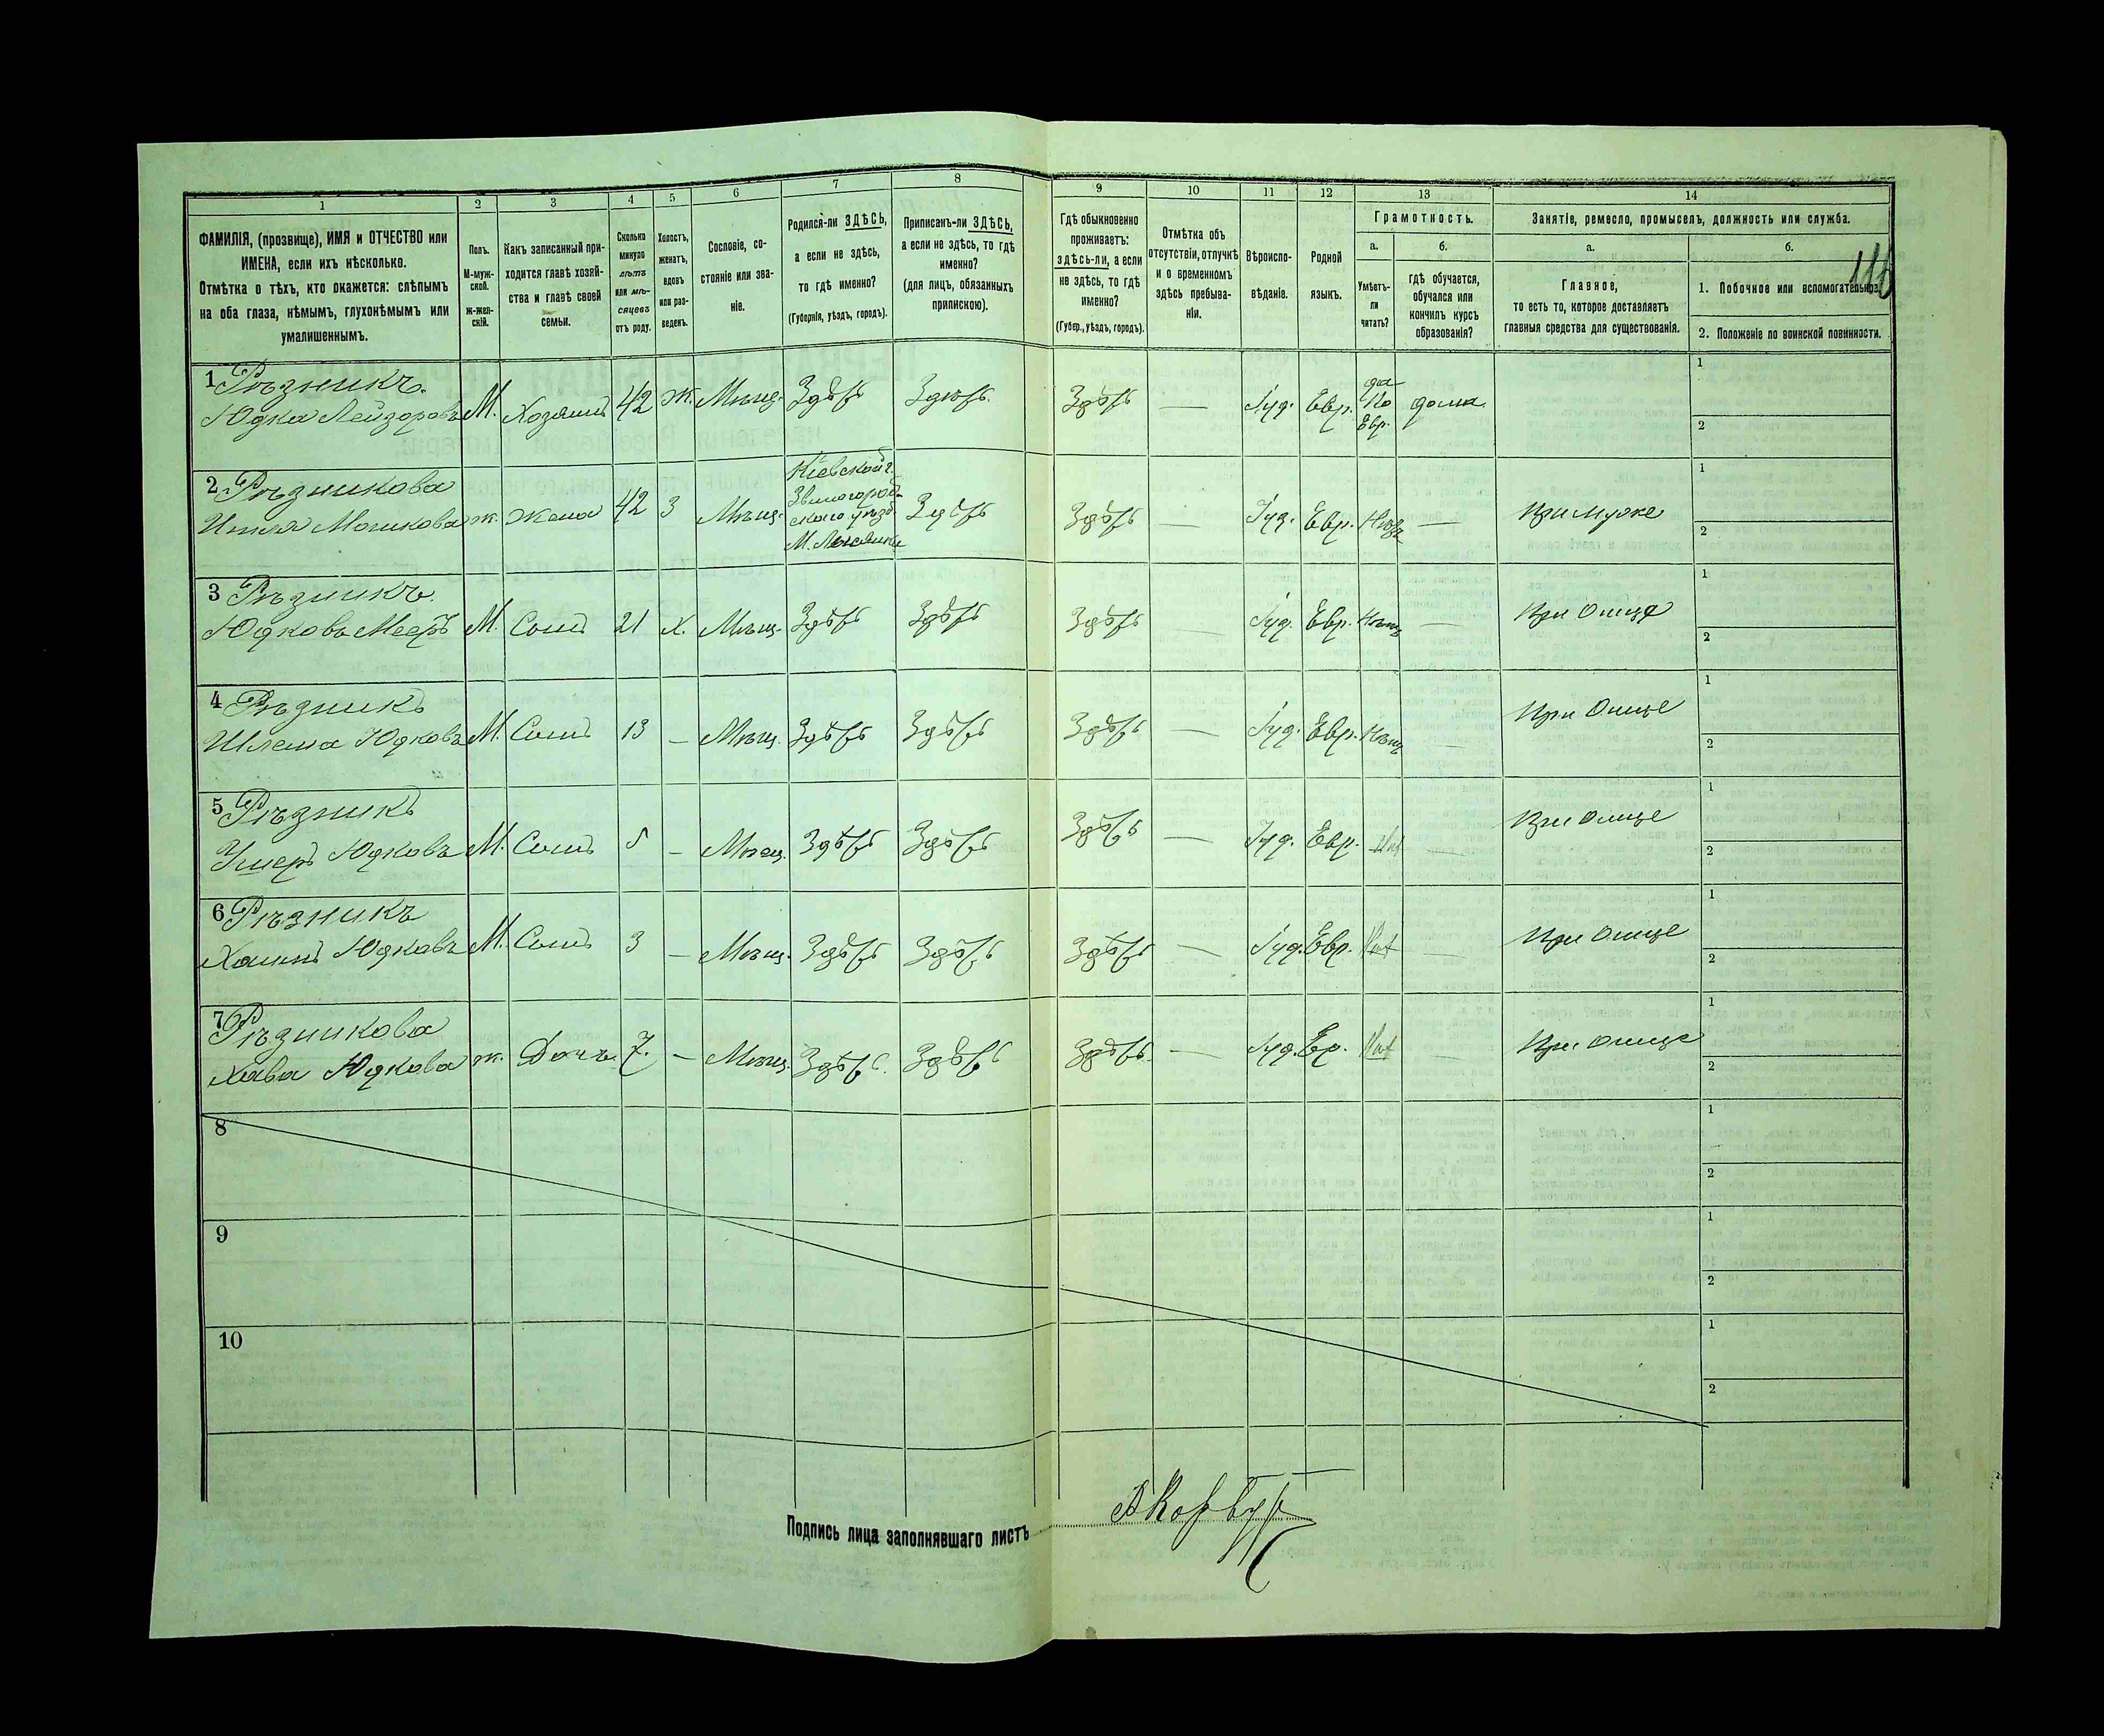 1 2 3 4 5 6 7 8 9 10 11 12 13 14
ФАМИЛІЯ, (прозвище), ИМЯ и ОТЧЕСТВО или
ИМЕНА, если ихъ нѣсколько.
Отмѣтка о тѣхъ, кто окажется: слѣпымъ
на оба глаза, нѣмымъ, глухонѣмымъ или
умалишеннымъ.
Полъ.
М-муж-
ской.
ж-жен-
скій.
Какъ записанный при-
ходится главѣ хозяй-
ства и главѣ своей
семьи.
Сколько
минуло
лѣтъ
или мѣ-
сяцевъ
отъ роду.
Холостъ,
женатъ,
вдовъ
или раз-
веденъ.
Сословіе, со-
стояніе или зва-
ніе.
Родился-ли ЗДѢСЬ,
а если не здѣсь,
то гдѣ именно?
(Губернія, уѣздъ, городъ).
Приписанъ-ли ЗДѢСЬ,
а если не здѣсь, то гдѣ
именно?
(для лицъ, обязанныхъ
припискою).
Гдѣ обыкновенно
проживаетъ:
здѣсь-ли, а если
не здѣсь, то гдѣ
именно?
(Губер., уѣздъ, городъ).
Отмѣтка объ
отсутствіи, отлучкѣ
и о временномъ
здѣсь пребыва-
ніи.
Вѣроиспо-
вѣданіе.
Родной
языкъ.
Грамотность.
а.
Умѣетъ-
ли
читать?
б.
гдѣ обучается,
обучался или
кончилъ курсъ
образованія?
Занятіе, ремесло, промыселъ, должность или служба.
а.
Главное,
то есть то, которое доставляетъ
главныя средства для существованія.
б.
1. Побочное или вспомогательное.
2. Положеніе по воинской повинности.
1 Рѣзникъ
Юдка Лейзоровъ М. Хозяинъ 42 Ж. Мѣщ. Здѣсь Здѣсь Здѣсь — Іуд. Евр. да по Евр. дома 1 2
2 Рѣзникова
Мошкова ж. Жена 42 З Мѣщ. Кіевской г. Звиногород-скаго уѣзд. М. Лысянки Здѣсь Здѣсь — Іуд. Евр. — при мужѣ 1 2
3 Рѣзникъ
Юдковъ Мееръ М. Сынъ 21 Х. Мѣщ. Здѣсь Здѣсь Здѣсь — Іуд. Евр. — При отцѣ 1 2
4 Рѣзникъ
Шлема Юдковъ М. Сынъ 13 — Мѣщ. Здѣсь Здѣсь Здѣсь — Іуд. Евр. — При отцѣ 1 2
5 Рѣзникъ
Юдковъ М. Сынъ 5 — Мѣщ. Здѣсь Здѣсь Здѣсь — Іуд. Евр. — При отцѣ 1 2
6 Рѣзникъ
Хаимъ Юдковъ М. Сынъ 3 — Мѣщ. Здѣсь Здѣсь Здѣсь — Іуд. Евр. — При отцѣ 1 2
7 Рѣзникова
Хава Юдкова ж. Дочь 7. — Мѣщ. Здѣсь Здѣсь Здѣсь — Іуд. Ев. — При отцѣ 1 2
8 1 2
9 1 2
10 1 2
Подпись лица заполнявшаго листъ